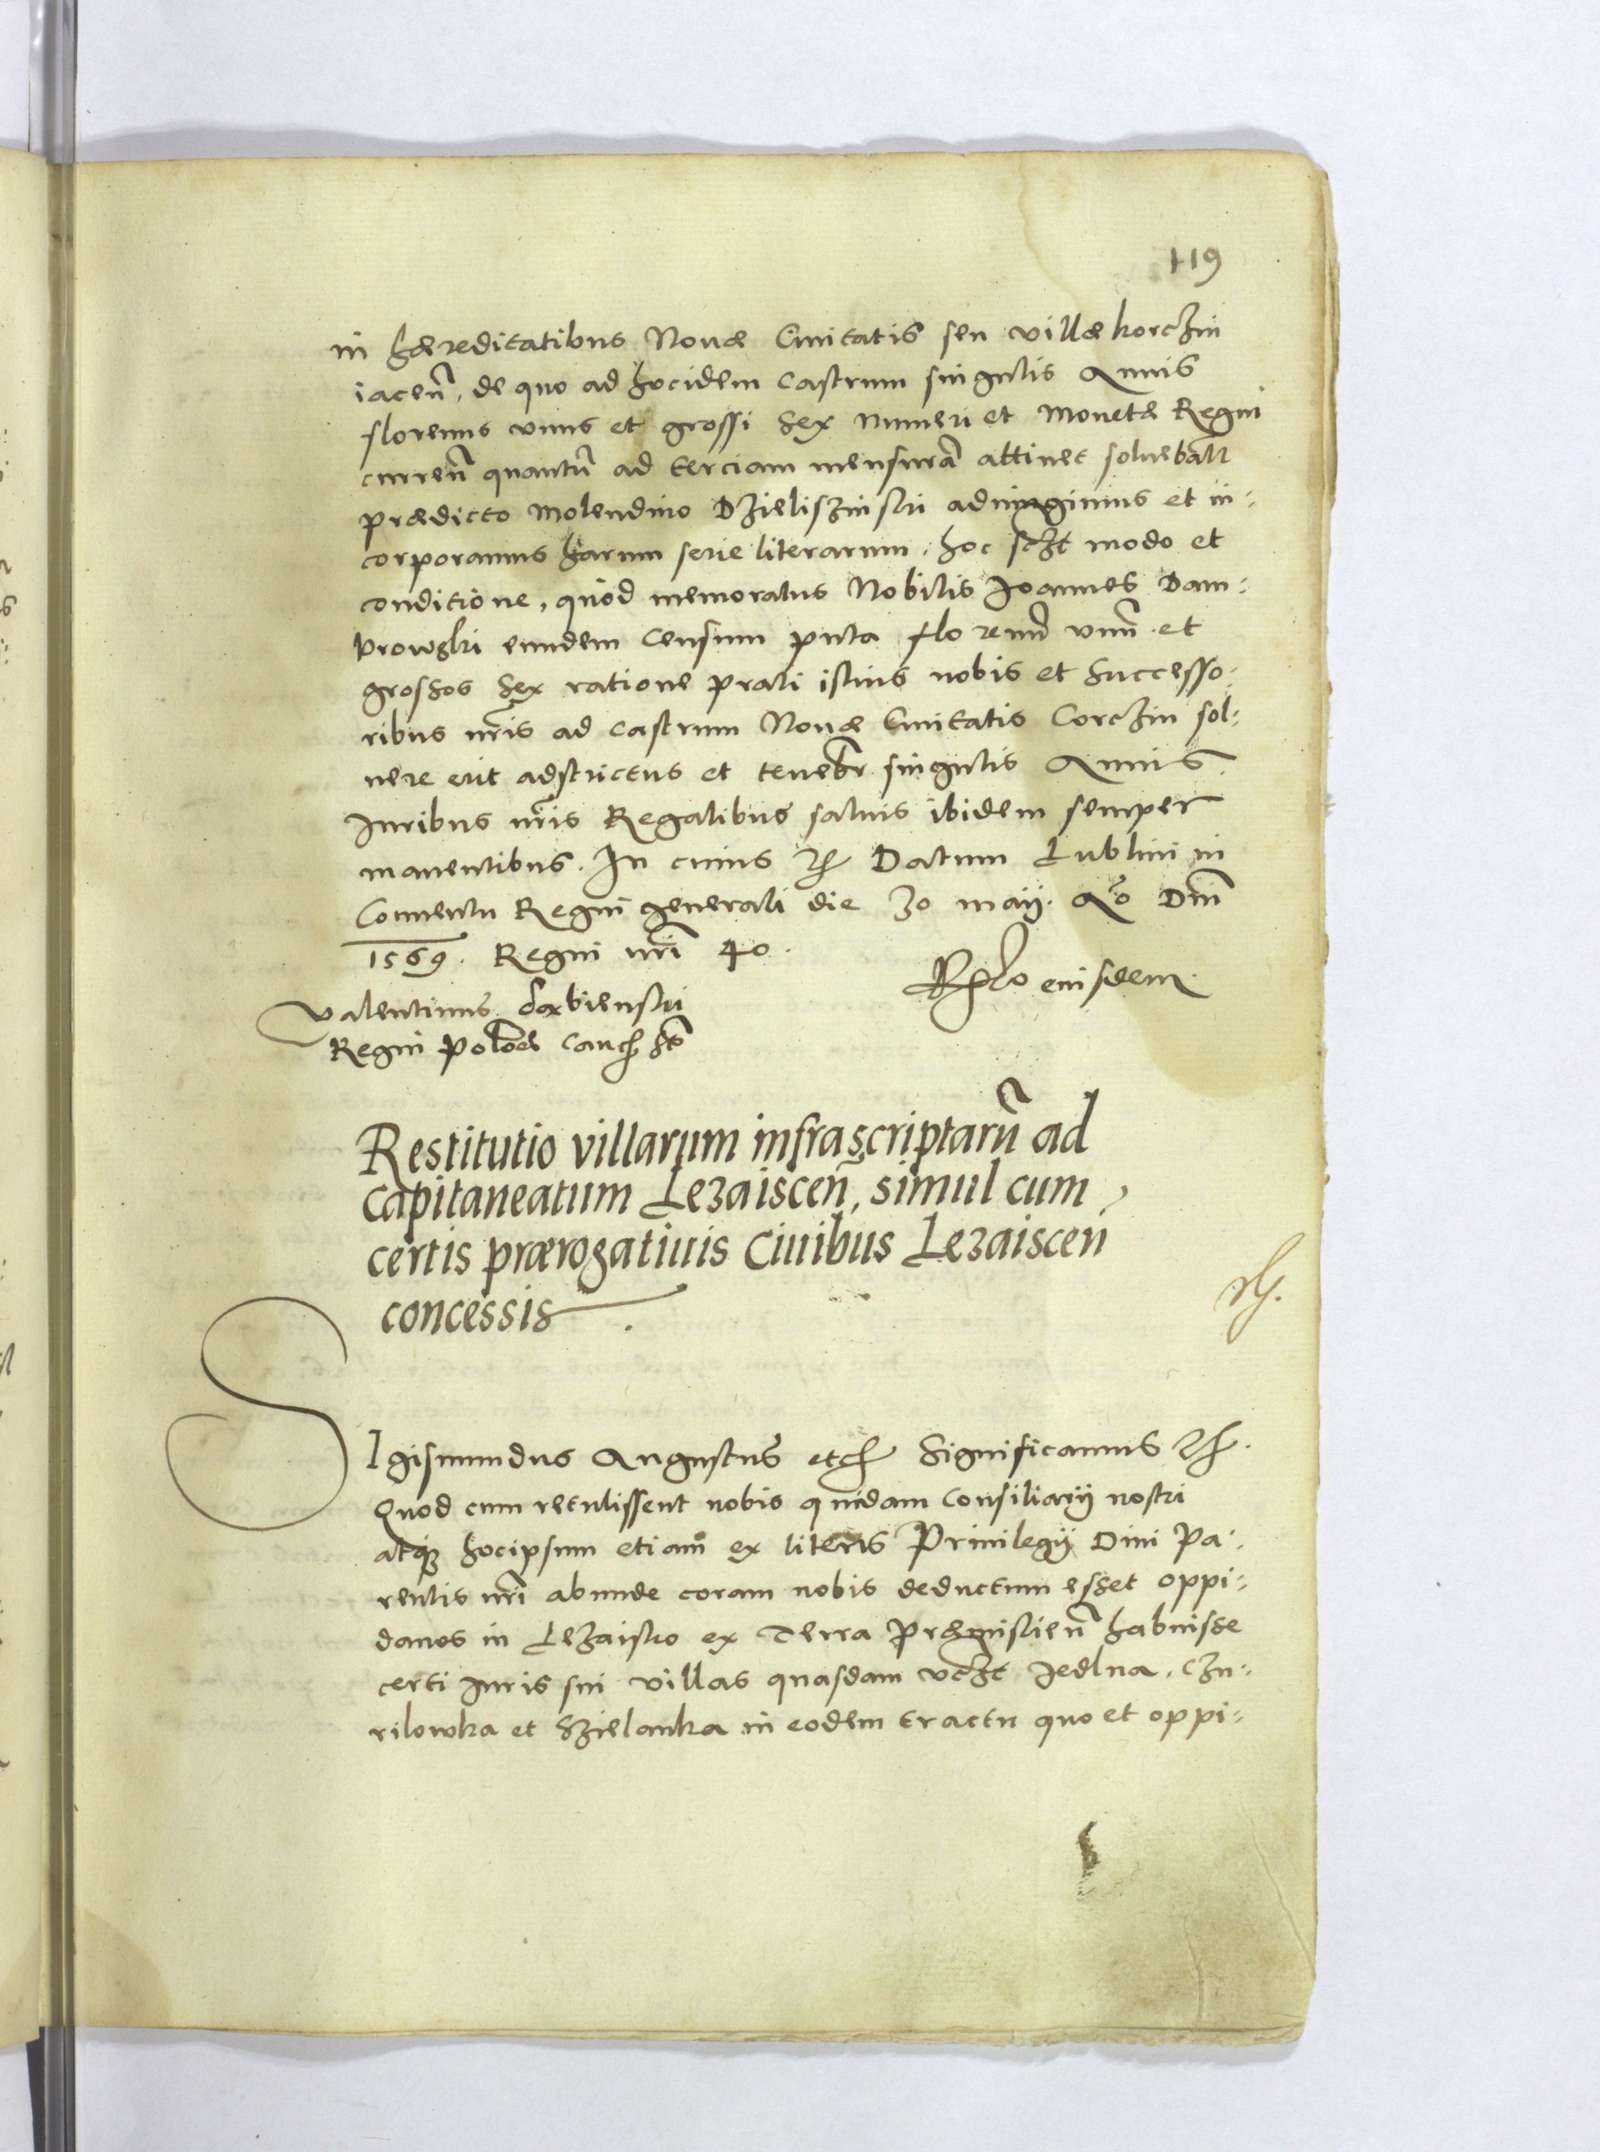 119
in hæreditatibus Nouæ Ciuitatis seu villæ korczin
iacen̄, de quo ad hocidem Castrum singulis Annis
florenus vnus et grossi sex numeri et Monetæ Regni
curren̄ quantū ad terciam mensurā attinet soluebatr
prædicto Molendino Dzieliszinski adiungimus et in-
corporamus harum serie literarum, hoc sczt modo et
conditione, quod memoratus Nobilis Joannes Dam-
browski eundem Censum puta florenū vnū et
grossos sex ratione prati istius nobis et Successo-
ribus nr̄is ad Castrum Nouæ Ciuitatis Corczin sol-
uere erit adstrictus et tenebr̄ singulis Annis
Juribus nr̄is Regalibus saluis ibidem semper
manentibus. In cuius rę Datum Lublini in
Conuentu Regni generali die 30 maÿ. Aō Dn̄i
1569. Regni nr̄i 40.
Valentinus Dębienski
Regni Polōae Cancs̄ sst
Rlo eiusdem
Restitutio villarum infrascriptarū ad
capitaneatum Lezaiscen̄, simul cum
certis prærogatiuis Ciuibus Lezaiscen̄
concessis.
SIgismundus Augustus etc̄ Significamus rę.
Quod cum retulissent nobis quidam Consiliarÿ nostri
atq̨ hocipsum etiam ex literis Priuilegÿ Diui Pa-
rentis nr̄i abunde coram nobis deductum esset oppi-
danos in Lezaisko ex Terra Præmislien̄ habuisse
certi Juris sui villas quasdam vczt Jedlna, Czu-
rilowka et Szielanka in eodem tractu quo et oppi-